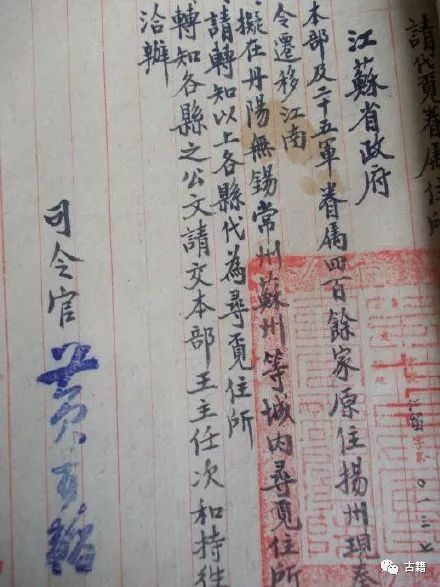 請代覓眷屬住所
江蘇省政府
本部及二十五軍眷屬四百餘家原住揚州現奉
令遷移江南
擬在丹陽無錫常州蘇州等城內尋覓住所
請轉知以上各縣代為尋覓住所
轉知各縣之公文請交本部王主任次和持往
洽辦
司令官 黃百韜
字第
〇一三七
古籍